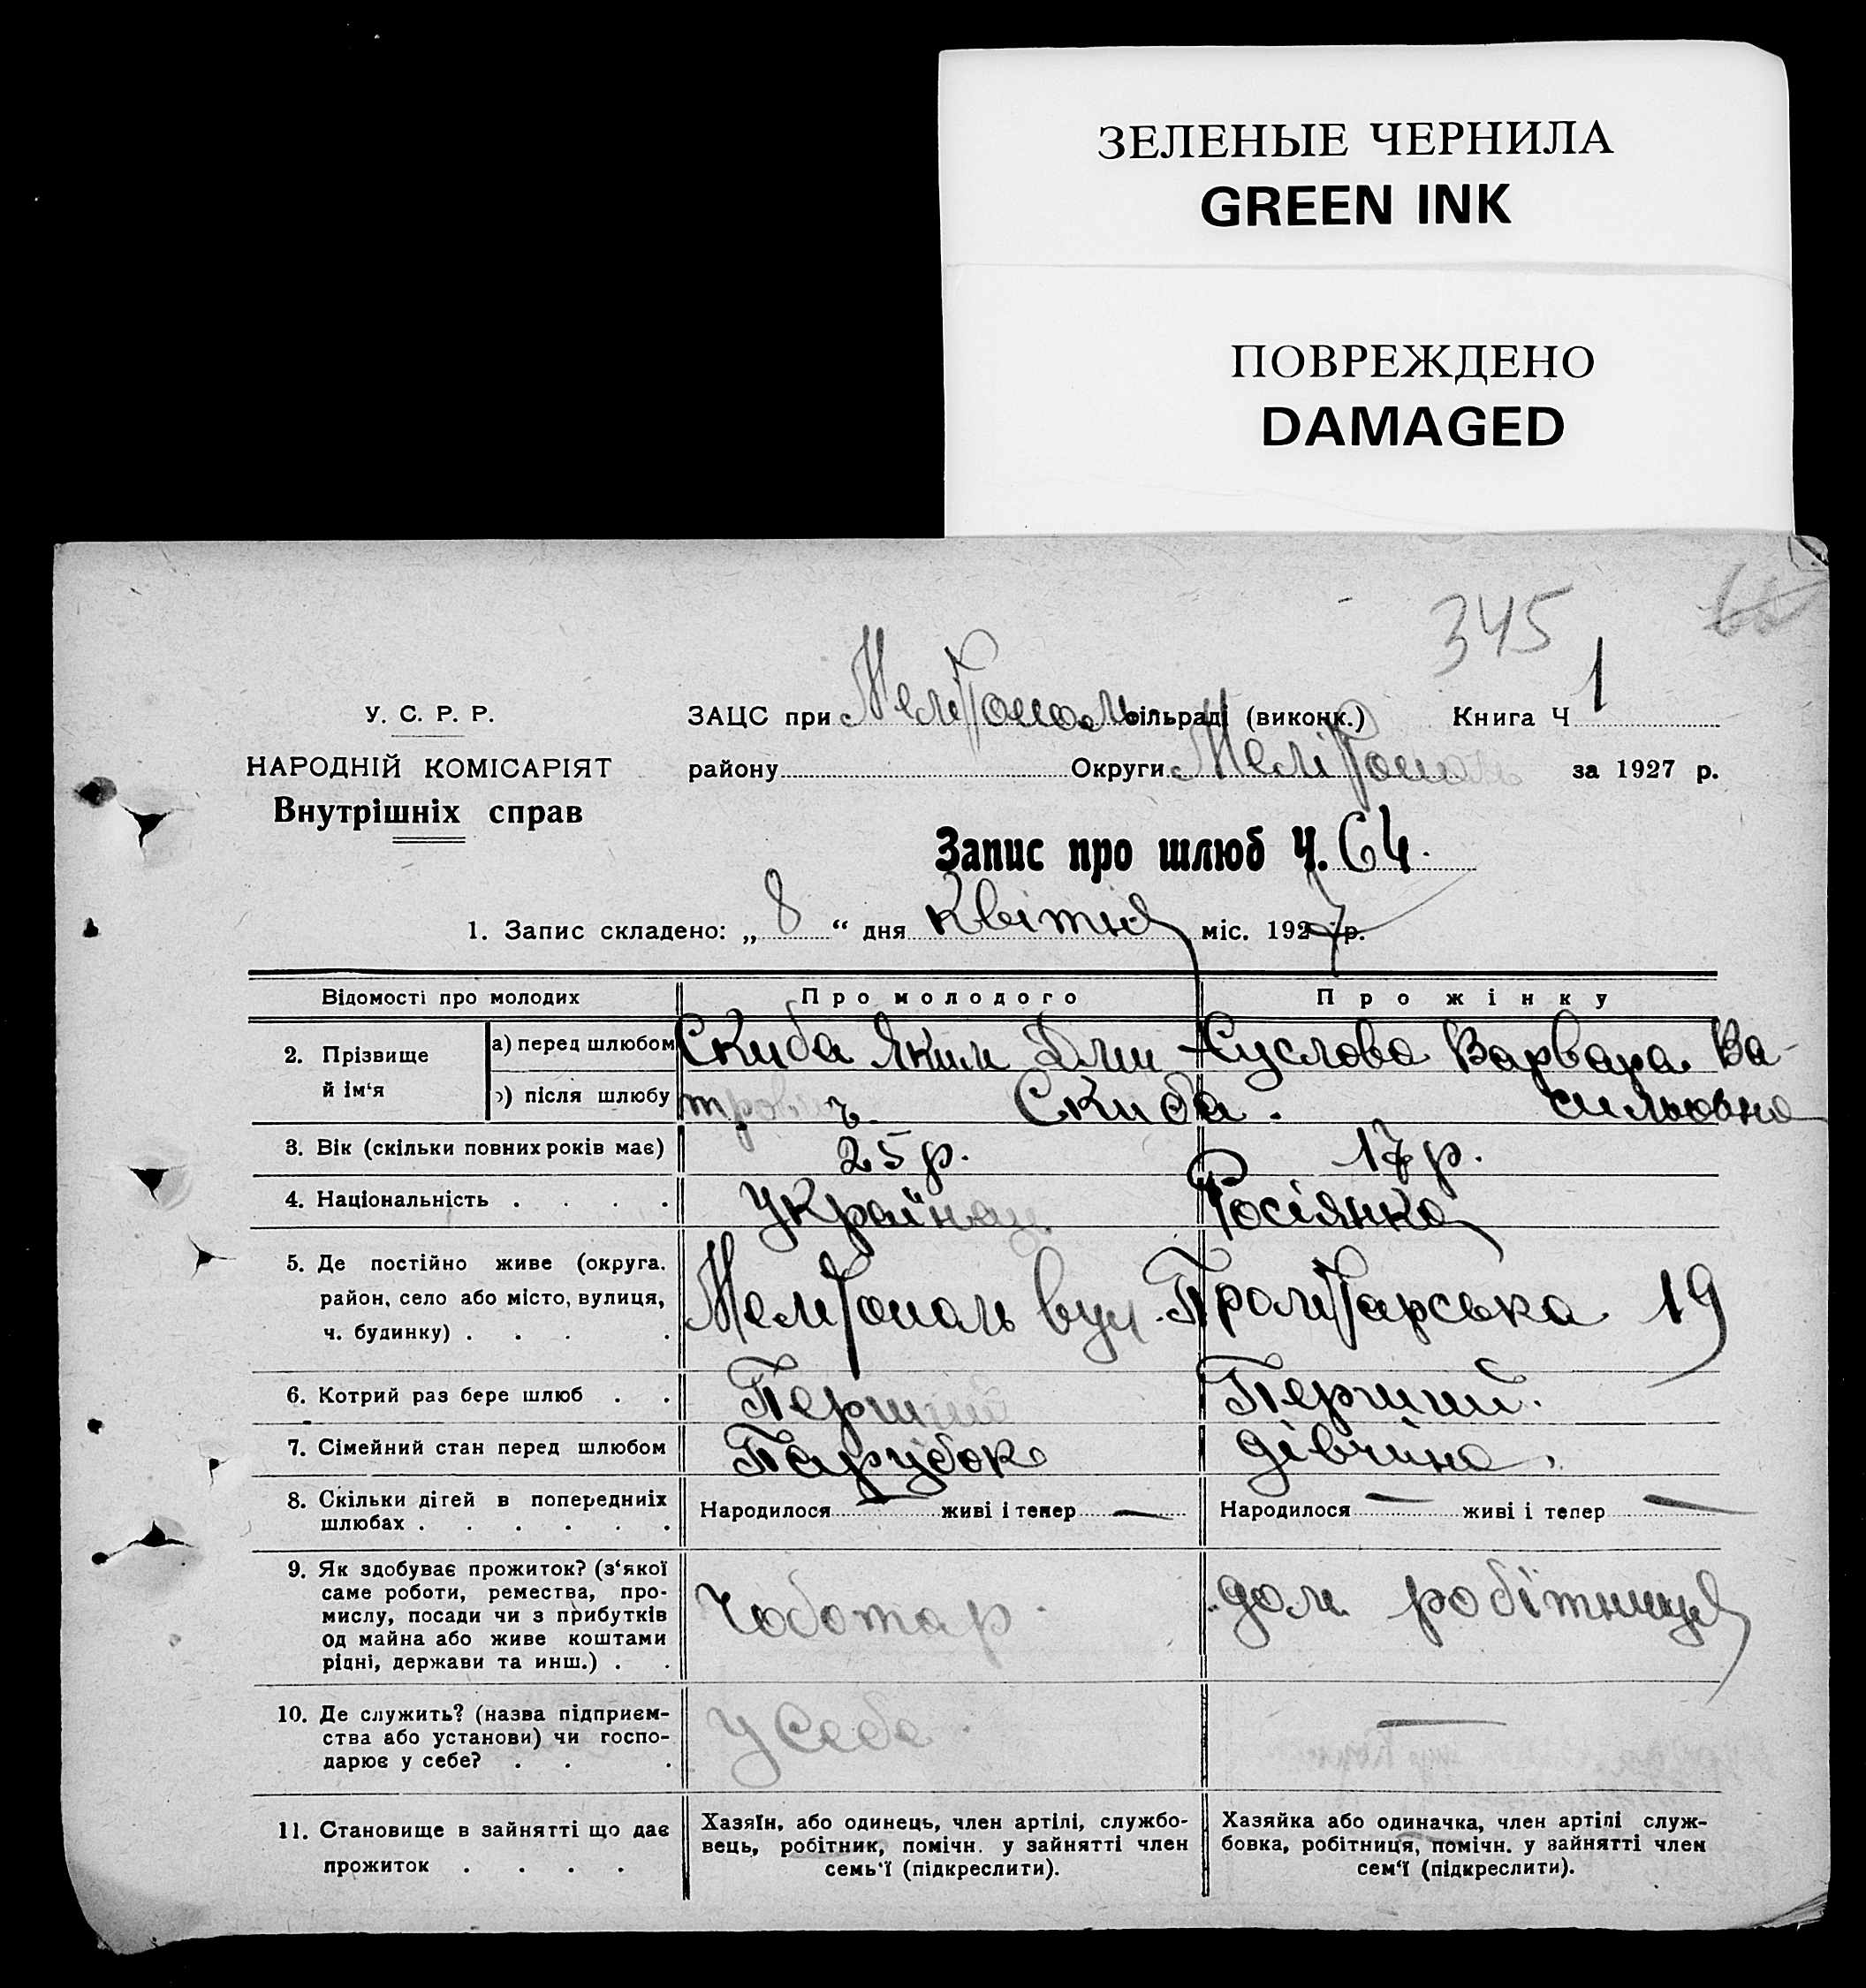 ЗЕЛЕНЫЕ ЧЕРНИЛА
GREEN INK
ПОВРЕЖДЕНО
DAMAGED
345
У. С. Р. Р.
НАРОДНІЙ КОМІСАРІЯТ
Внутрішніх справ
ЗАЦС при Мелітополь сільраді (виконк.) Книга Ч 1
району Округи Мелітополь за 1927 р.
Запис про шлюб Ч. 64.
1. Запис складено: „ 8 “ дня Квітня міс. 1927 р.
Відомості про молодих Про молодого Про жінку
2. Прізвище й ім‘я
а) перед шлюбом Скиба Яким Дми- Суслова Варвара Ва-
б) після шлюбу трович Скиба. сильовна
3. Вік (скільки повних років має) 25 р. 17 р.
4. Національність . . . . Українец Росіянка
5. Де постійно живе (округа.
район, село або місто, вулиця,
ч. будинку) . . . .
Мелітополь вул. Пролітарська 19
6. Котрий раз бере шлюб . . Перший Перший.
7. Сімейний стан перед шлюбом Парубок дівчина.
8. Скільки дітей в попередниіх
шлюбах . . . . . .
Народилося — живі і тепер — Народилося — живі і тепер —
9. Як здобуває прожиток? (з‘якої
саме роботи, ремества, про-
мислу, посади чи з прибутків
од майна або живе коштами
рідні, держави та инш.) . .
Чоботар. дом. робітниця
10. Де служить? (назва підприєм-
ства або установи) чи госпо-
дарює у себе? . . .
У себе. —
11. Становище в зайнятті що дає
прожиток . . . .
Хазяїн, або одинець, член артілі, службо-
вець, робітник, помічн. у зайнятті член
семь‘ї (підкреслити).
Хазяйка або одиначка, член артілі служ-
бовка, робітниця, помічн. у зайнятті член
сем‘ї (підкреслити).